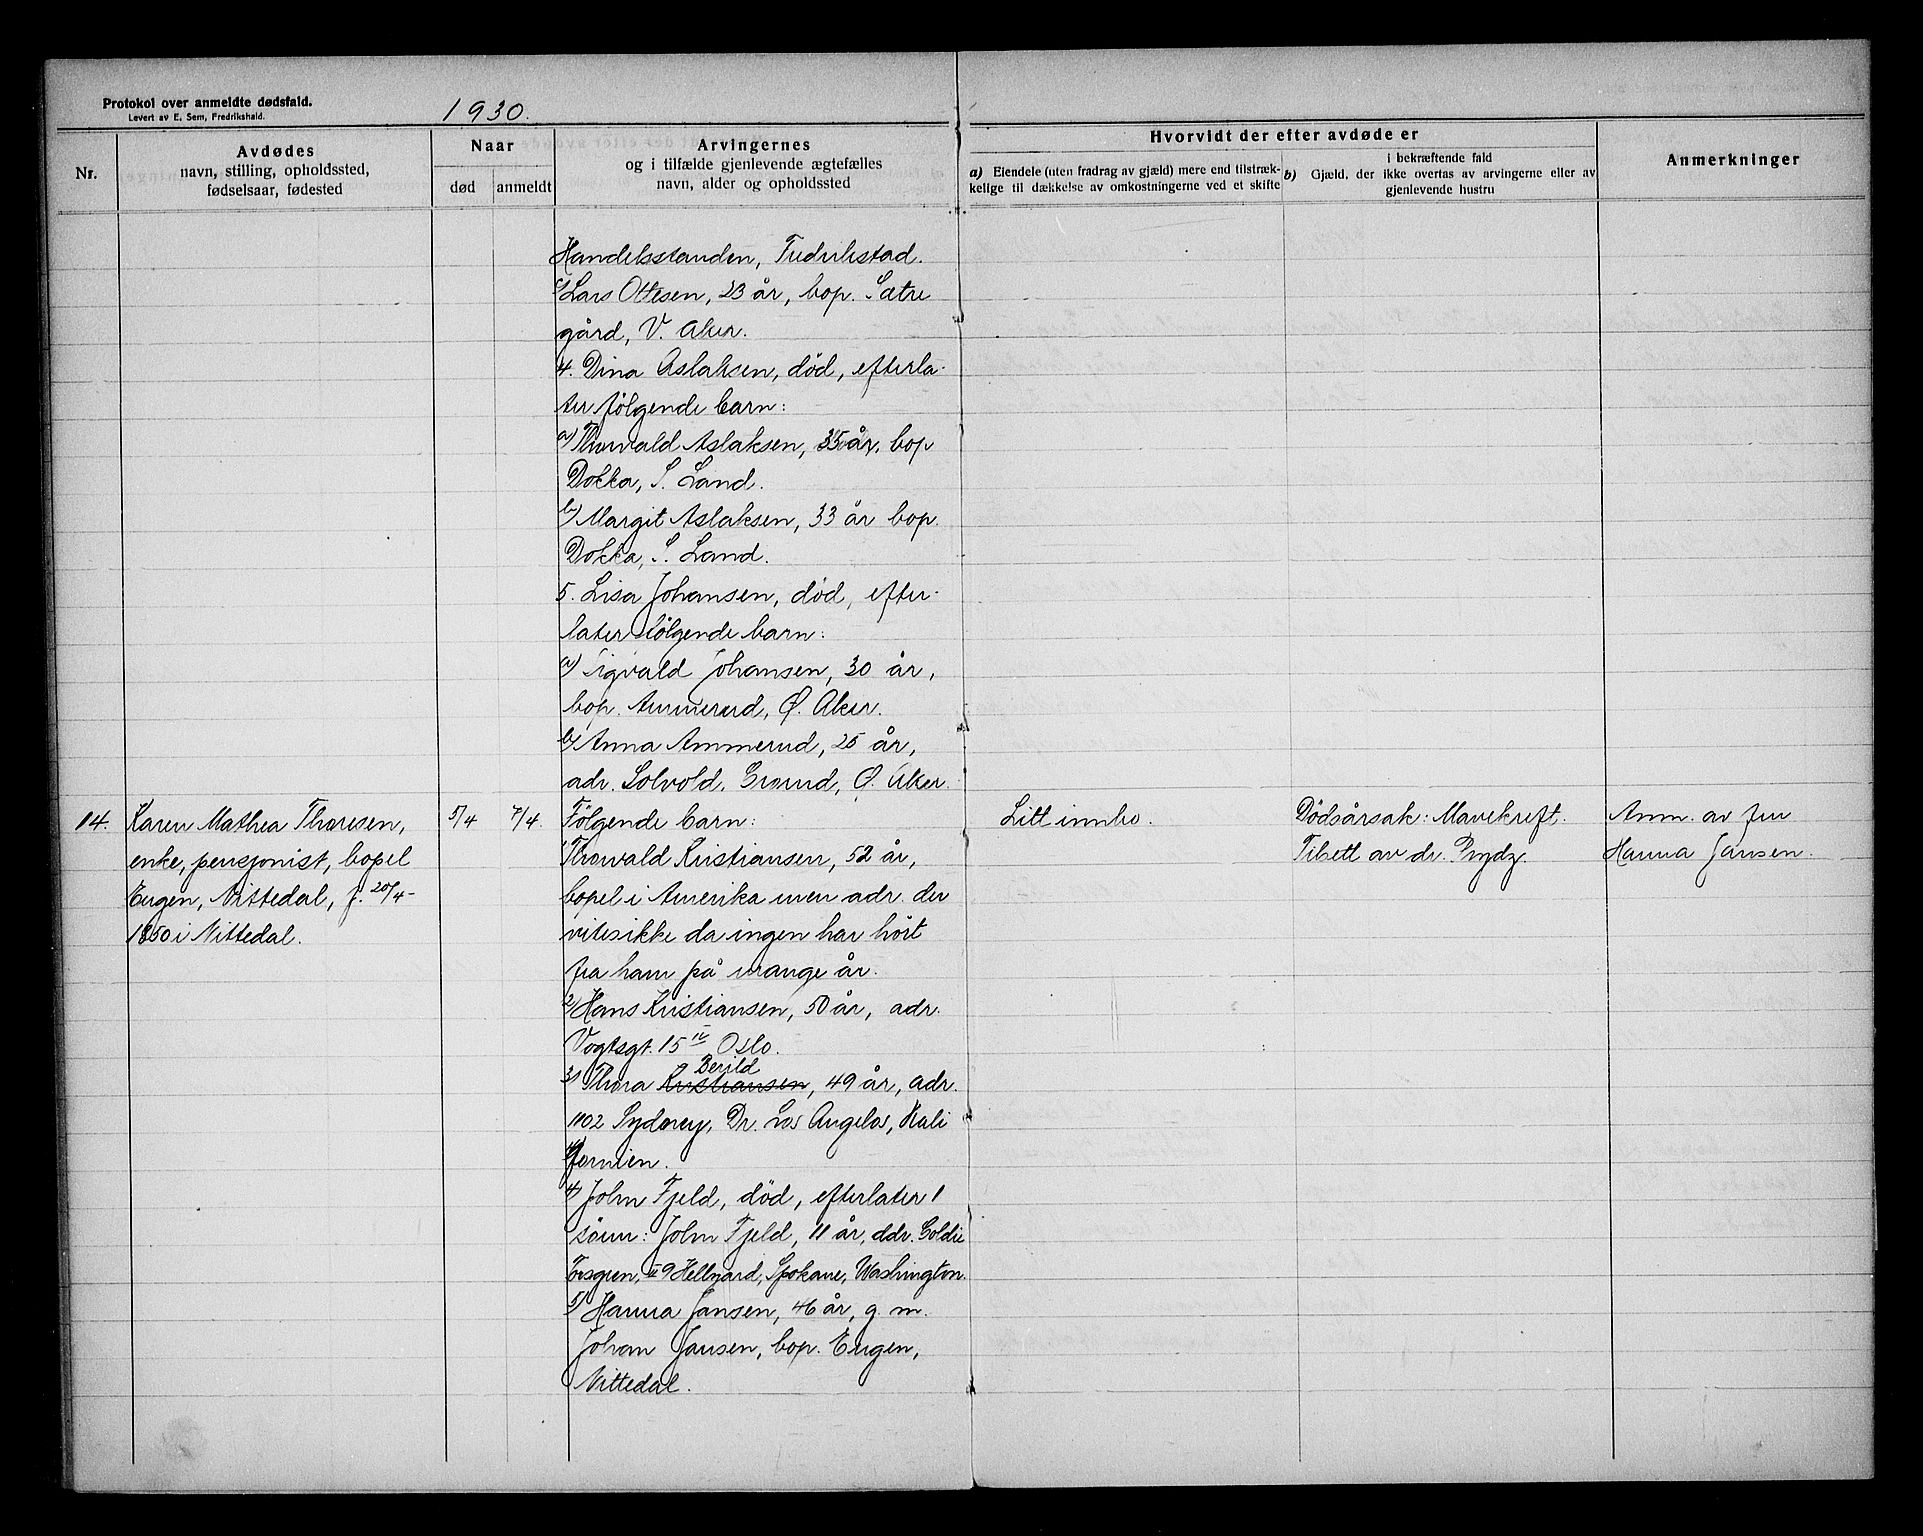 Protokol over anmeldte dødsfald.
Levert av E. Sem, Fredrikshald.
1930.
Nr.
Avdødes
navn, stilling, opholdssted,
fødselsaar, fødested
Naar
død
anmeldt
Arvingernes
og i tilfælde gjenlevende ægtefælles
navn, alder og opholdssted
Hvorvidt der efter avdøde er
a) Eiendele (uten fradrag av gjæld) mere end tilstræk-
kelige til dækkelse av omkostningerne ved et skifte
i bekræftende fald
b) Gjæld, der ikke overtas av arvingerne eller av
gjenlevende hustru
Anmerkninger
Handelsstanden, Fredrikstad.
c) Lars Ottesen, 23 år, bop. Sætre
gård, V. Aker.
4. Dina Aslaksen, död, efterla-
ter følgende barn:
a) Thorvald Aslaksen, 35 år, bop
Dokka, S. Land.
b) Margit Aslaksen, 33 år bop.
Dokka, S. Land.
5. Lisa Johansen, död, efter-
later følgende barn:
a) Sigvald Johansen, 30 år,
bop. Ammerud, Ø. Aker.
b) Anna Ammerud, 25 år,
adr. Solvold, Grorud, Ø. Aker.
14.
Karen Mathea Thoresen,
enke, pensjonist, bopel
Engen, Nittedal, f. 20/4-
1850 i Nittedal.
5/4
7/4.
Følgende barn:
Thorvald Kristiansen, 52 år,
bopel i Amerika men adr. der
vites ikke da ingen har hört
fra ham på mange år.
2) Hans Kristiansen, 50 år, adr.
Vogtsgt. 15 IV Oslo.
Berild
3) Thora Kristiansen, 49 år, adr.
1102 Sydney, Dr. Los Angelos, Kali
fornien.
4) John Fjeld, död, efterlater 1
sönn: John Fjeld, 11 år, adr. Goldie
Forsgren, 9 Hellyard, Spokane, Washington.
5) Hanna Jansen, 46 år, g. m.
Johan Jansen, bop. Engen,
Nittedal.
Litt innbo.
Dödsårsak: Mavekreft.
Tilsett av dr. Prydz.
Anm. av fru
Hanna Jansen.